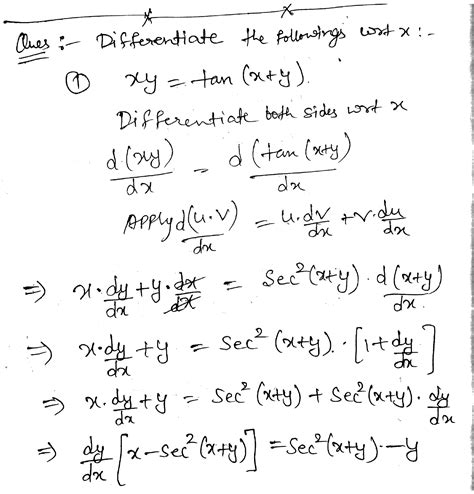 Ques :- Differentiate the followings wrt x :-
① xy = tan (x+y).
Differentiate both sides wrt x
d(xy)/dx = d(tan(x+y))/dx
Apply d(u.v)/dx = u.dv/dx + v.du/dx
⇒ x.dy/dx + y.dx/dx = Sec²(x+y) . d(x+y)/dx
⇒ x.dy/dx + y = Sec² (x+y). [1+dy/dx]
⇒ x.dy/dx + y = Sec² (x+y) + Sec²(x+y). dy/dx
⇒ dy/dx [x-Sec²(x+y)] = Sec²(x+y).-y